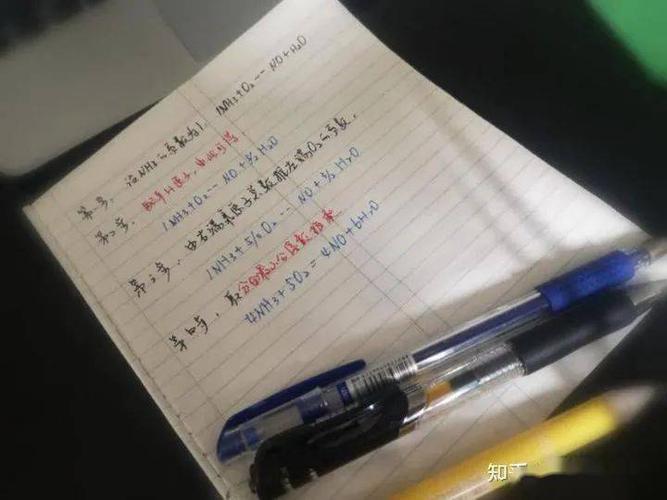 第一步, 设NH3的系数为1 1NH3+O2--NO+H2O
第二步, 配平H原子, 由此可得
1NH3+O2--NO+3/2H2O
第三步, 由右端氧原子总数推左端O2的系数,
1NH3+5/4O2--NO+3/2H2O
第四步, 取分母最小公倍数扩乘
4NH3+5O2=4NO+6H2O
知乎